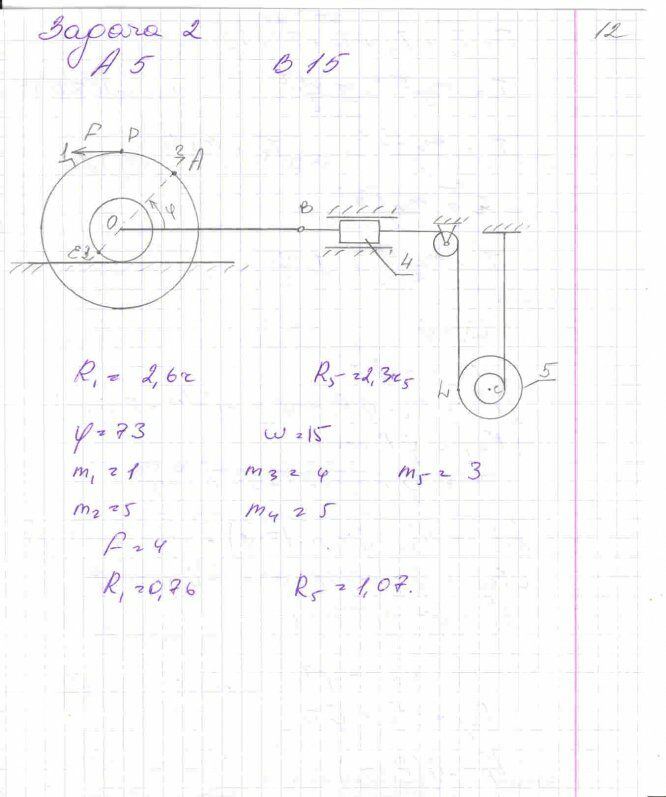 Задача 2 12
A 5 B 15
F P
1 3 A
O φ B
2 4
L C 5
R₁ = 2,6r R₅ = 2,3r₅
φ = 73 ω = 15
m₁ = 1 m₃ = 4 m₅ = 3
m₂ = 5 m₄ = 5
F = 4
R₁ = 0,76 R₅ = 1,07.